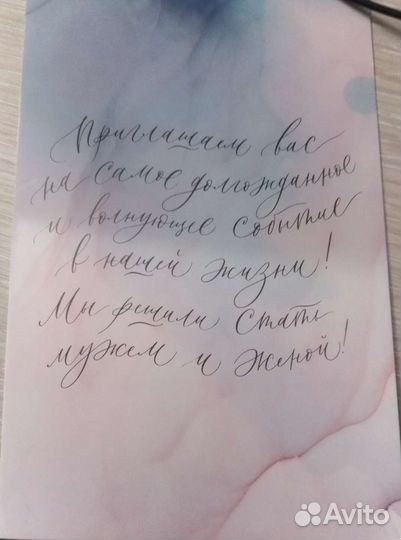 Приглашаем вас
на самое долгожданное
и волнующее событие
в нашей жизни!
Мы решили стать
мужем и женой!
Avito